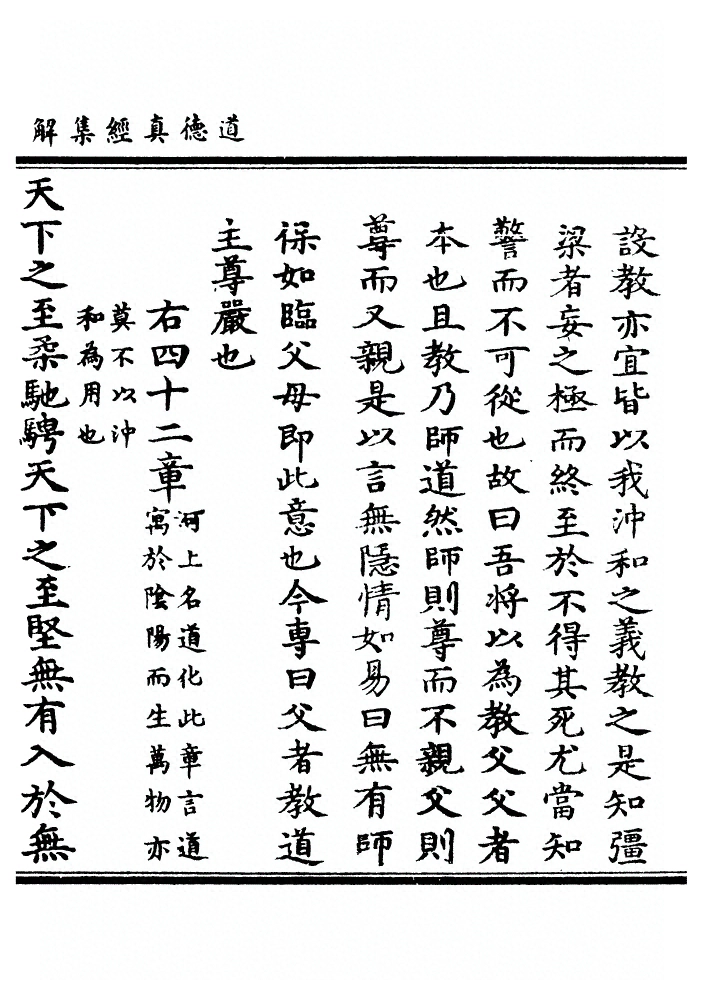 道德真經集解
設教亦宜皆以我沖和之義教之是知彊
梁者妄之極而終至於不得其死尤當知
警而不可從也故曰吾將以為教父父者
本也且教乃師道然師則尊而不親父則
尊而又親是以言無隱情如易曰無有師
保如臨父母即此意也今專曰父者教道
主尊嚴也
右四十二章
河上名道化此章言道
寓於陰陽而生萬物亦
莫不以沖
和為用也
天下之至柔馳騁天下之至堅無有入於無